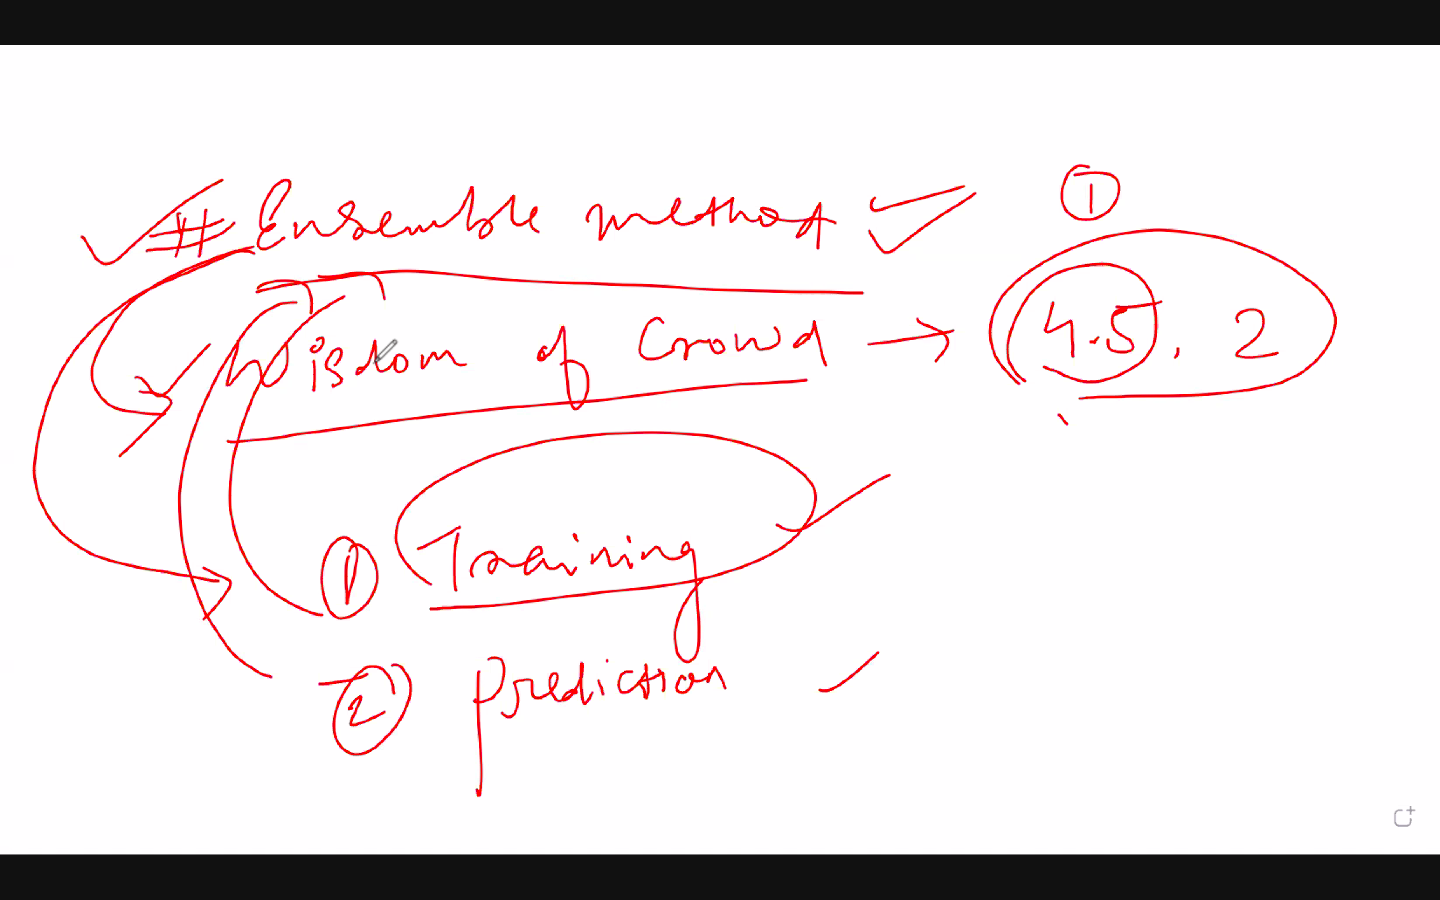 ①
# Ensemble method
Wisdom of Crowd → 4.5, 2
① Training
② Prediction